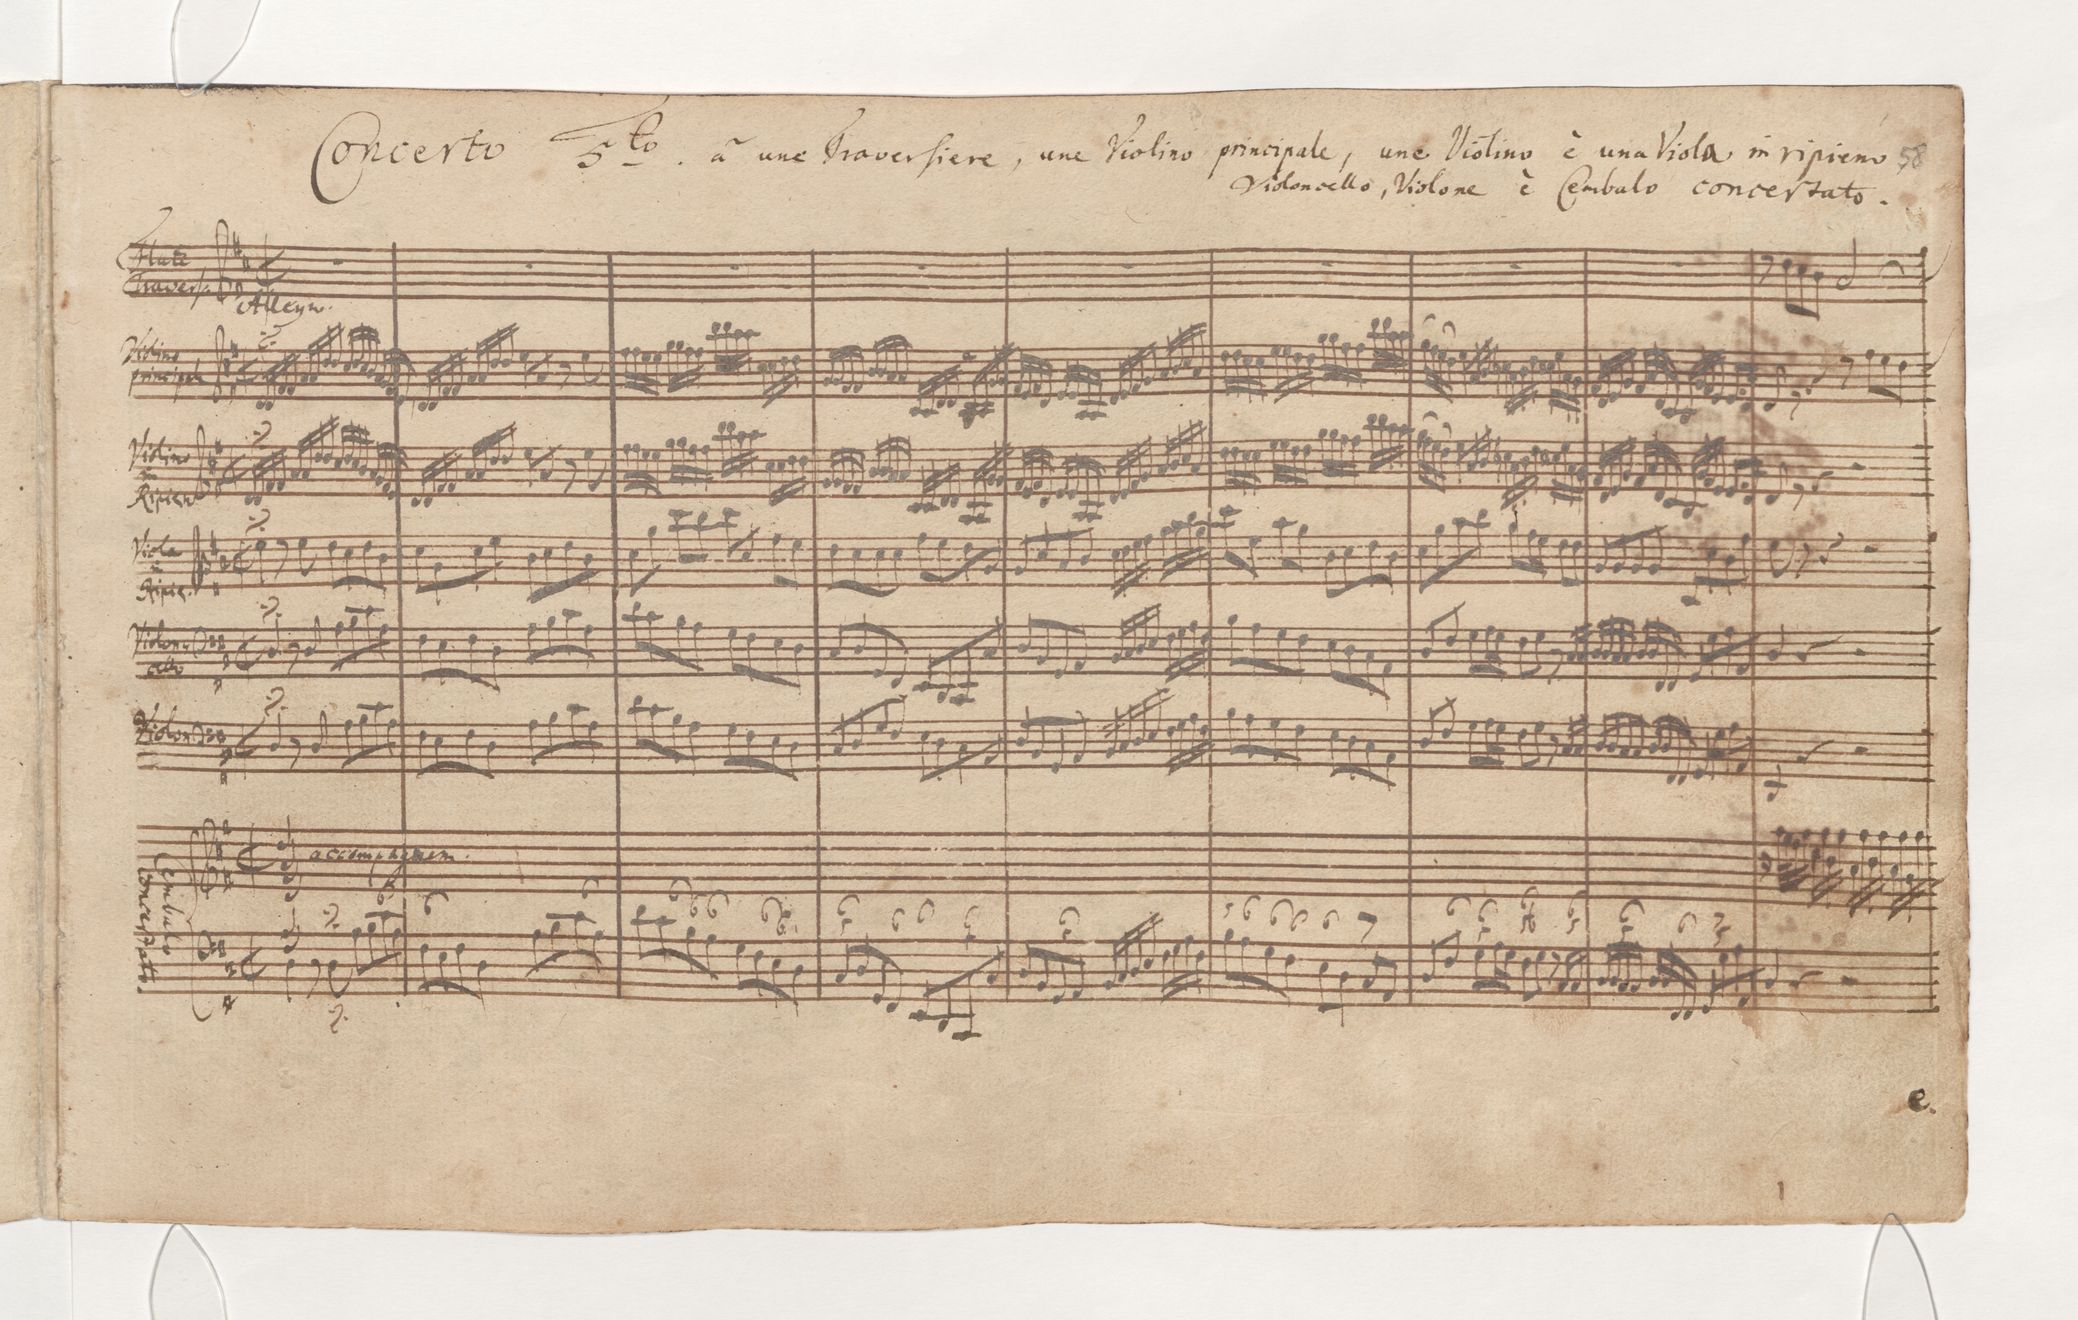 Concerto 5to. à une Traversiere, une Violino principale, une Violino è una Viola in ripieno 58
Violoncello, Violone è Cembalo concertato.
Flute
Travers.
Allegro.
Violino
principale
Violino
in
Ripieno
Viola
in
Ripien.
Violon
cello
Violon
accompagnem.
Cembalo
concertato.
e.
1